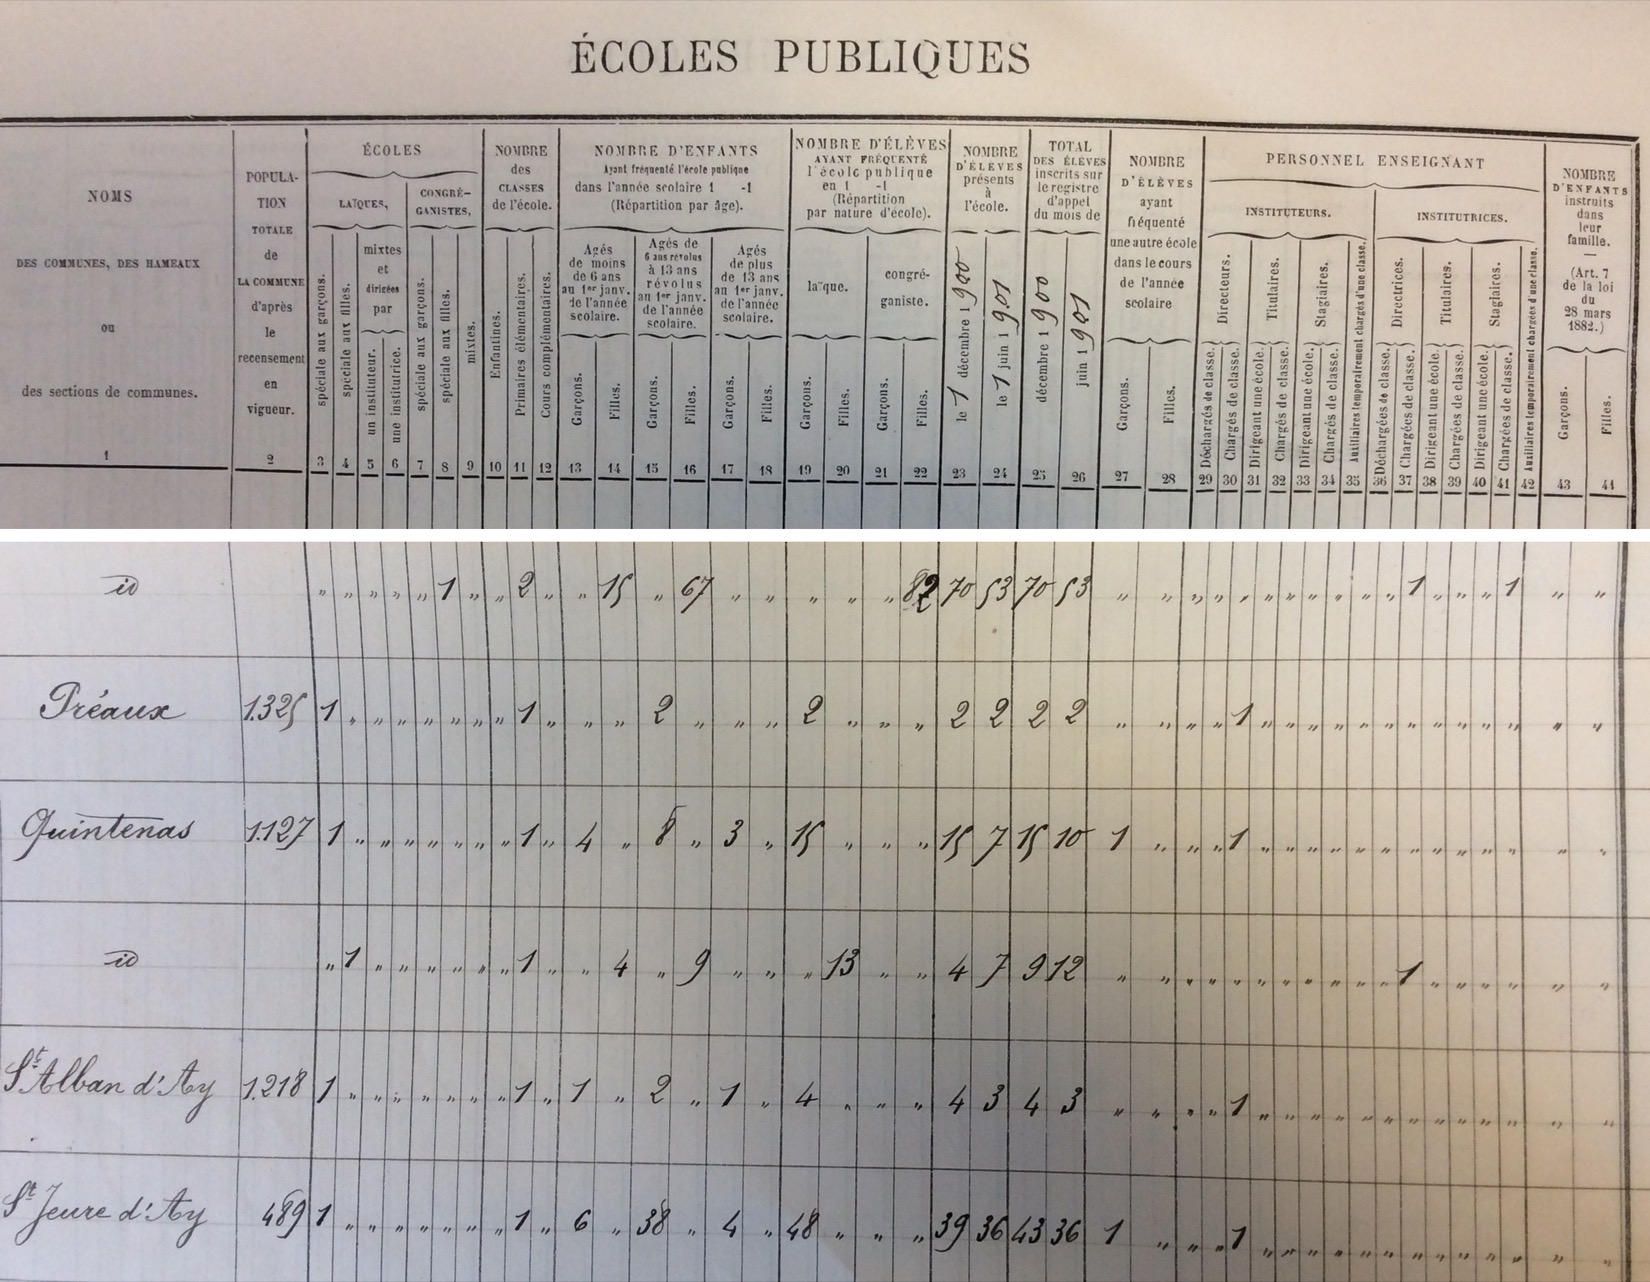 ÉCOLES PUBLIQUES
NOMS
DES COMMUNES, DES HAMEAUX
ou
des sections de communes.
1
POPULA-
TION
TOTALE
de
LA COMMUNE
d'après
le
recensement
en
vigueur.
2
ÉCOLES
LAÏQUES,
spéciale aux garçons.
3
spéciale aux filles.
4
mixtes
et
dirigées
par
un instituteur.
5
une institutrice.
6
CONGRÉ-
GANISTES,
spéciale aux garçons.
7
spéciale aux filles.
8
mixtes.
9
NOMBRE
des
CLASSES
de l'école.
Enfantines.
10
Primaires élémentaires.
11
Cours complémentaires.
12
NOMBRE D'ENFANTS
Ayant fréquenté l'école publique
dans l'année scolaire 1 -1
(Répartition par âge).
Agés
de moins
de 6 ans
au 1er janv.
de l'année
scolaire.
Garçons.
13
Filles.
14
Agés de
6 ans révolus
à 13 ans
révolus
au 1er janv.
de l'année
scolaire.
Garçons.
15
Filles.
16
Agés
de plus
de 13 ans
au 1er janv.
de l'année
scolaire.
Garçons.
17
Filles.
18
NOMBRE D'ÉLÈVES
AYANT FRÉQUENTÉ
l'école publique
en 1 -1
(Répartition
par nature d'école).
laïque.
Garçons.
19
Filles.
20
congré-
ganiste.
Garçons.
21
Filles.
22
NOMBRE
D'ÉLÈVES
présents
à
l'école.
le 1 décembre 1900
23
le 1 juin 1901
24
TOTAL
DES ÉLÈVES
inscrits sur
le registre
d'appel
du mois de
décembre 1900
25
juin 1901
26
NOMBRE
D'ÉLÈVES
ayant
fréquenté
une autre école
dans le cours
de l'année
scolaire
Garçons.
27
Filles.
28
PERSONNEL ENSEIGNANT
INSTITUTEURS.
Directeurs.
Déchargés de classe.
29
Chargés de classe.
30
Titulaires.
Dirigeant une école.
31
Chargés de classe.
32
Stagiaires.
Dirigeant une école.
33
Chargés de classe.
34
Auxiliaires temporairement chargés d'une classe.
35
INSTITUTRICES.
Directrices.
Déchargées de classe.
36
Chargées de classe.
37
Titulaires.
Dirigeant une école.
38
Chargées de classe.
39
Stagiaires.
Dirigeant une école.
40
Chargées de classe.
41
Auxiliaires temporairement chargées d'une classe.
42
NOMBRE
D'ENFANTS
instruits
dans
leur
famille.
—
(Art. 7
de la loi
du
28 mars
1882.)
Garçons.
43
Filles.
44
id " " " " " 1 " " 2 " " 15 " 67 " " " " " 82 70 53 70 53 " " " " " " " " " " 1 " " " 1 " " "
Préaux 1.325 1 " " " " " " " 1 " " " 2 " " " 2 " " " 2 2 2 2 " " " 1 " " " " " " " " " " " " " "
Quintenas 1.127 1 " " " " " " " 1 " 4 " 8 " 3 " 15 " " " 15 7 15 10 1 " " 1 " " " " " " " " " " " " " "
id " 1 " " " " " " 1 " " 4 " 9 " " " 13 " " 4 7 9 12 " " " " " " " " " " 1 " " " " " " "
St Alban d'Ay 1.218 1 " " " " " " " 1 " 1 " 2 " 1 " 4 " " " 4 3 4 3 " " " 1 " " " " " " " " " " " " " "
St Jeure d'Ay 489 1 " " " " " " " 1 " 6 " 38 " 4 " 48 " " " 39 36 43 36 1 " " 1 " " " " " " " " " " " " " "